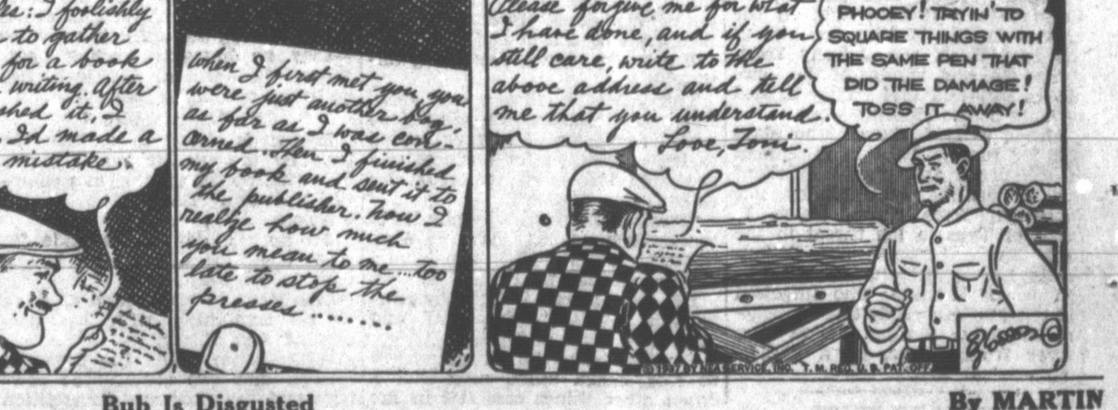 I foolishly
to gather
for a book
writing. After
it, I
I'd made a
mistake.
When I first met you you
were just another
as far as I was con-
cerned. Then I finished
my book and sent it to
the publisher. Now I
realize how much
you mean to me ... too
late to stop the
presses ........
Please forgive me for what
I have done, and if you
still care, write to the
above address and tell
me that you understand.
Love, Toni.
PHOOEY! TRYIN' TO
SQUARE THINGS WITH
THE SAME PEN THAT
DID THE DAMAGE!
TOSS IT AWAY!
BY NEA SERVICE, INC. T. M. REG. U. S. PAT. OFF.
Bub Is Disgusted
By MARTIN